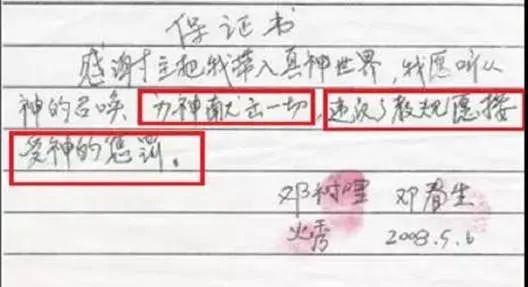 保证书
感谢主把我带入真神世界,我愿听从
神的召唤 为神献出一切,违反了教规愿接
受神的惩罚。
邓树 邓春生
秀 2008.5.6